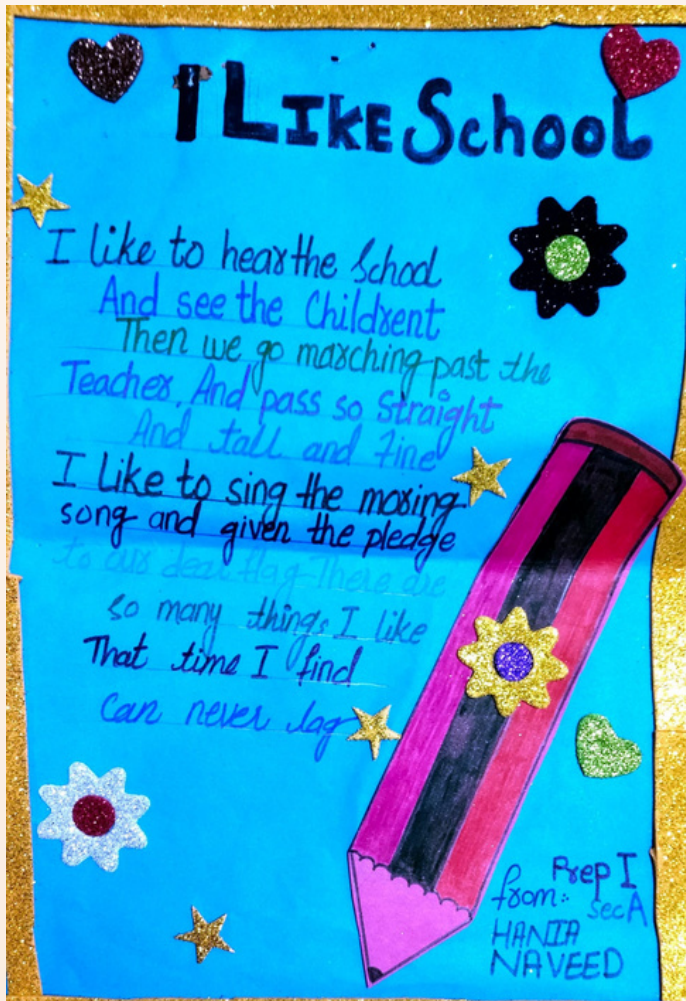 I LIKE School
I like to hear the School
And see the Childrent
Then we go marching past the
Teacher, And pass so straight
And tall and Fine
I like to sing the moring
song and given the pledge
to our dear flag There are
so many things I like
That time I find
Can never lag
Prep I
from: sec A
HANIA
NAVEED